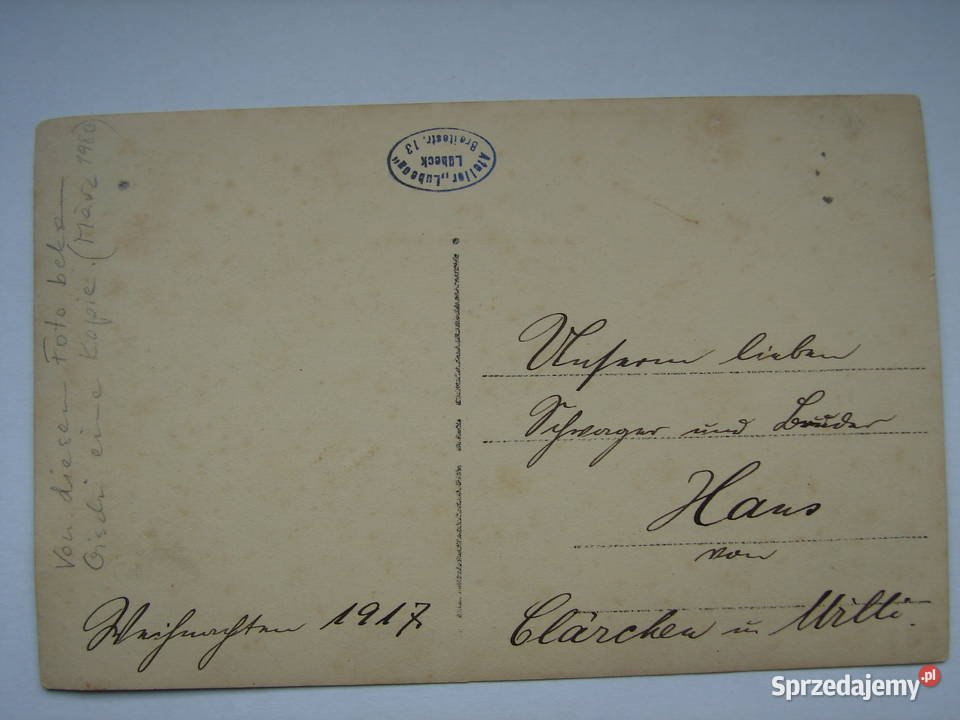 Von diesem Foto beka
Gisela eine Kopie. (März 1980)
Atelier „Lubeca“
Lübeck
Breitestr. 13
Unserm lieben
Schwager und Bruder
Hans
von
Clärchen u Willi.
Weihnachten 1917.
Sprzedajemy.pl